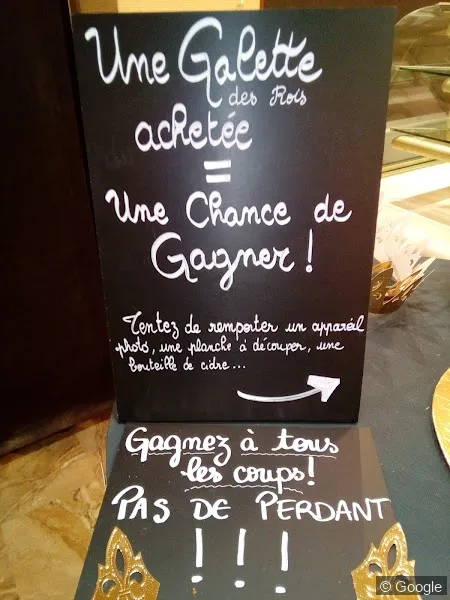 Une Galette
des Rois
achetée
=
Une Chance de
Gagner !
Tentez de remporter un appareil
photo, une planche à découper, une
bouteille de cidre...
Gagnez à tous
les coups!
PAS DE PERDANT
!!!
© Google